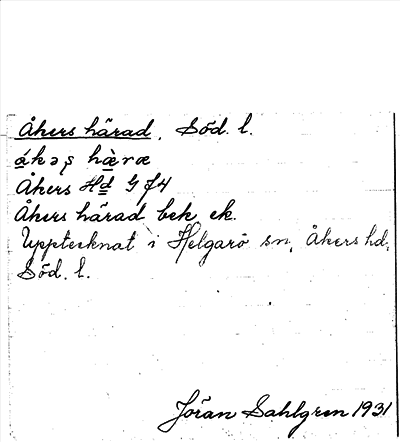 Åkers härad. Söd. l.
ákəʂ hæ̀ræ
Åkers Hd GJ4
Åkers härad bek ek.
Upptecknat i Helgarö sn, Åkers hd,
Söd. l.
Jöran Sahlgren 1931